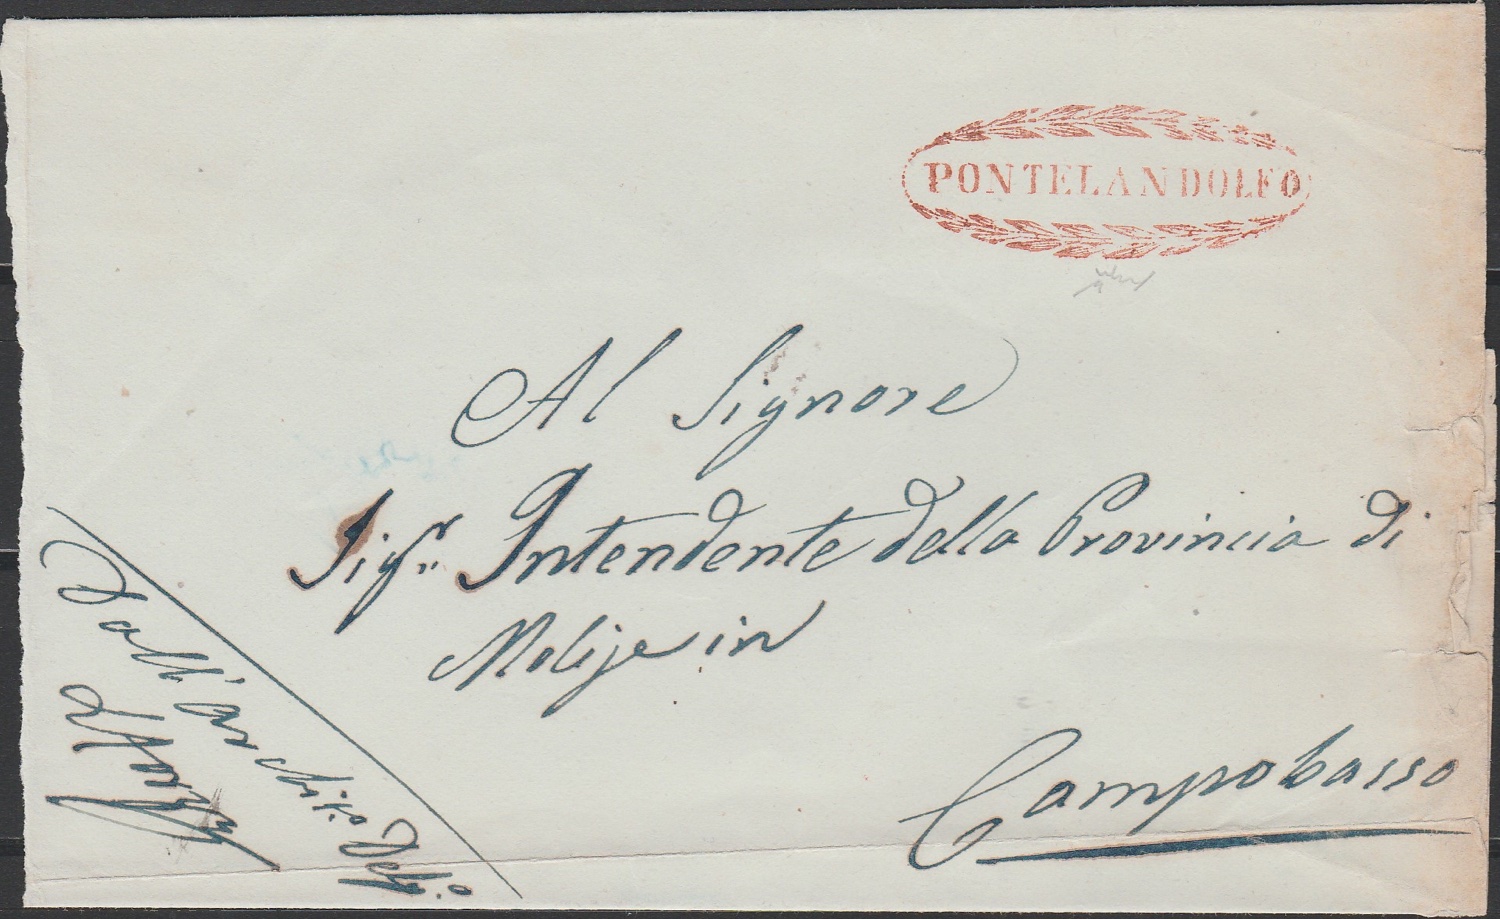 PONTELANDOLFO
Al Signore
Sigr. Intendente della Provincia di
Molise in
Campobasso
Dall'